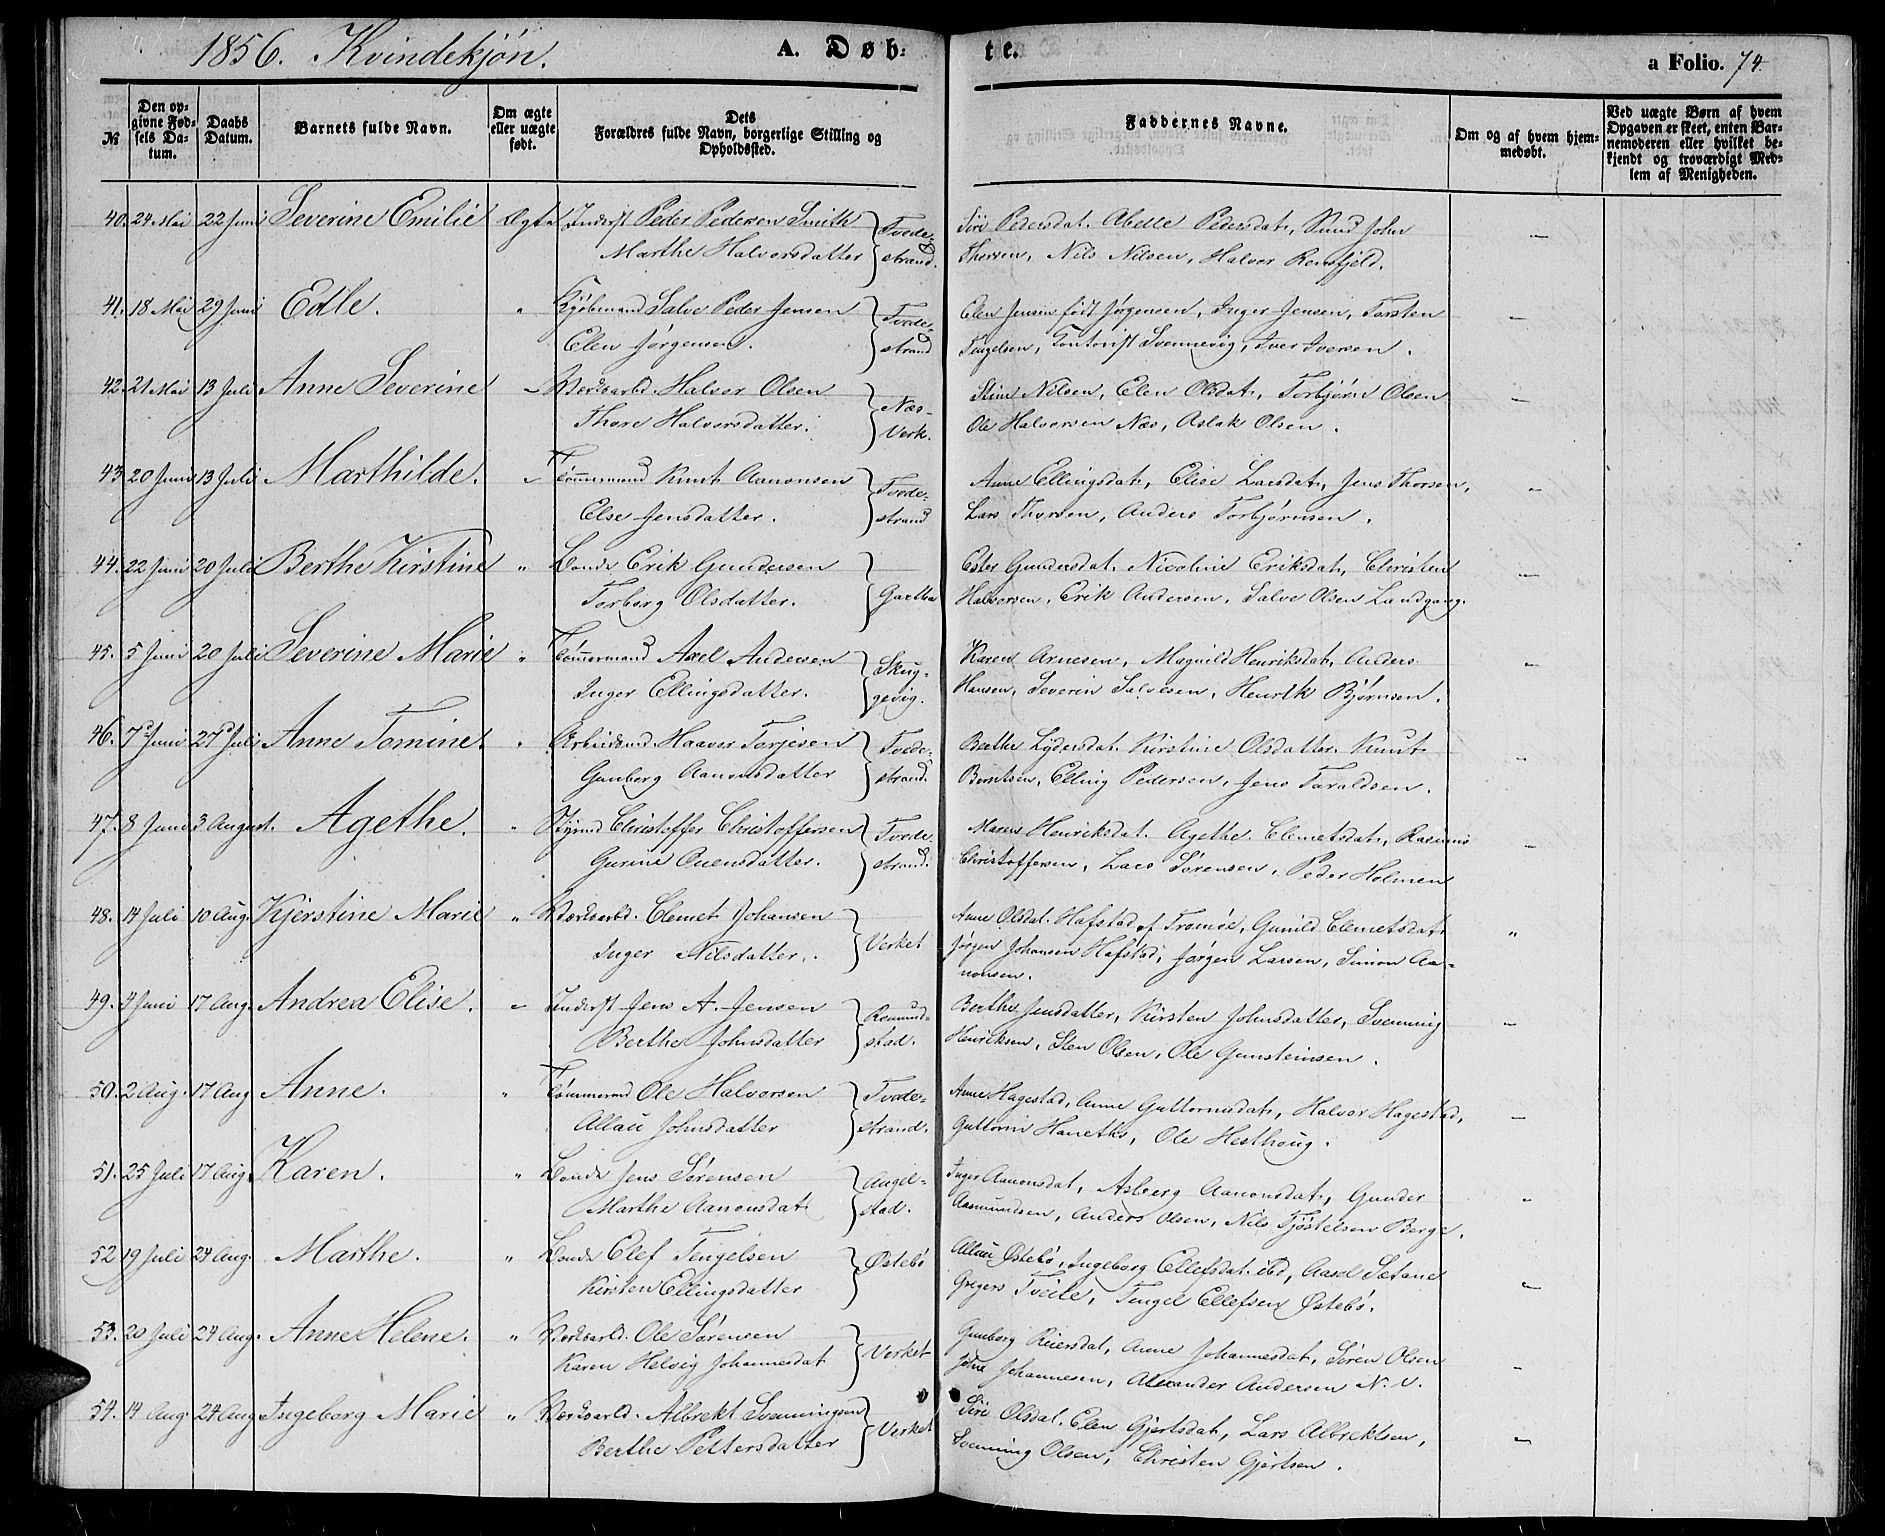 1856. Kvindekjøn. A. Døb: te. a Folio. 74.
№
Den op-
givne Fød-
sels Da-
tum.
Daabs
Datum.
Barnets fulde Navn.
Om ægte
eller uægte
født.
Dets
Forældres fulde Navn, borgerlige Stilling og
Opholdssted.
Faddernes Navne.
Om og af hvem hjem-
medøbt.
Ved uægte Børn af hvem
Opgaven er skeet, enten Bar-
nemoderen eller hvilket be-
kjendt og troværdigt Med-
lem af Menigheden.
40. 24 Mai 22 Juni Severine Emilie Ægte Inderst Peder Pedersen Smith Tvede- Siri Pedersdat. Abelle Pedersdat, Knud John
Marthe Halvorsdatter strand. Thorsen, Nils Nilsen, Halvor Rensfjeld. -
41. 18 Mai 29 Juni Edle. " Kjøbmand Salve Peder Jensen Tvede- Elen Jensen født Jørgensen, Inger Jensen, Torsten -
Elen Jørgensen. strand Tengelsen, Kontorist Svennevig, Iver Iversen.
42. 21 Mai 13 Juli Anne Severine - Værksarbd. Halvor Olsen Næs- Stine Nilsen, Elen Olsdat, Torbjørn Olsen -
Thore Halvorsdatter. Verk. Ole Halvorsen Næs, Aslak Olsen.
43 20 Juni 13 Juli Marthilde. " Tømmermand Knut Aanonsen Tvede- Anne Ellingsdat, Elise Larsdat, Jens Thorsen, -
Else Jensdatter. strand Lars Thorsen, Anders Torbjørnsen.
44. 22 Juni 20 Juli Berthe Kirstine " Bonde Erik Gundersen Ester Gundersdat. Nicoline Eriksdat, Christen -
Torborg Olsdatter. Gartha Halvorsen, Erik Andersen, Salve Olsen Landgang.
45. 5 Juni 20 Juli Severine Marie " Tømmermand Axel Andersen Skug- Karen Arnesen, Magnild Henriksdat, Anders -
Inger Ellingsdatter. gevig. Hansen, Severin Salvesen, Henrik Bjørnsen.
46. 7d Juni 27d Juli Anne Tomine. " Arbeidsmd. Haavor Torjesen Tvede- Berthe Lydersdat. Kirstine Olsdatter. Knut -
Gunborg Aanonsdatter strand. Berntsen, Elling Pedersen, Jens Taraldsen.
47. 8 Juni 3 August. Agethe. " Styrmd Christoffer Christoffersen Tvede- Maren Henriksdat. Agethe Clemetsdat, Rasmus -
Gurine Auensdatter. strand. Christoffersen, Lars Sørensen, Peder Holmen
48. 14 Juli 10 Aug. Kjerstine Marie " Værksarbd. Clemet Johansen Anne Olsdat. Hafstad af Tromøe, Gunild Clemetsdat. "
Inger Nilsdatter. Verket Jørgen Johansen Hafstad, Jørgen Larsen, Simon Aa-
nonsen.
49. 4 Juni 17 Aug. Andrea Elise. " Inderst Jens A. Jensen Romund- Berthe Jensdatter, Kirsten Johnsdatter, Svenning -
Berthe Johnsdatter stad. Henriksen, Sten Olsen, Ole Gunsteinsen.
50. 2 Aug. 17 Aug Anne. " Tømmermd Ole Halvorsen Tvede- Anne Hagestad, Anne Guttormsdat, Halvor Hagestad, -
Allau Johnsdatter strand. Guttorm Haneths, Ole Hesthoug.
51. 25 Juli 17 Aug. Karen. " Bonde Jens Sørensen Angel- Inger Aanonsdat, Asberg Aanonsdat, Gunder "
Marthe Aanonsdat stad. Aasmundsen, Anders Olsen, Nils Tjøstelsen Berge.
52 19 Juli 24 Aug. Marthe. " Bonde Elef Tengelsen Østebø Allau Østebø, Ingeborg Ellefsdat. ibd, Aasel Sætane -
Kirsten Ellingsdatter Gregers Tveite, Tengel Ellefsen Østebø.
53. 20 Juli 24 Aug. Anne Helene. " Værksarbd. Ole Sørensen Verket Gunborg Reiersdat, Anne Johannesdat, Søren Olsen -
Karen Helvig Johannesdat Johne Johannesen, Alexander Andersen N. V.
54. 14 Aug 24 Aug Ingeborg Marie " Værksarbd. Albrekt Svenningsen Verket Siri Olsdat. Elen Gjertsdat, Lars Albrektsen, -
Berthe Pettersdatter Svenning Olsen, Christen Gjertsen.